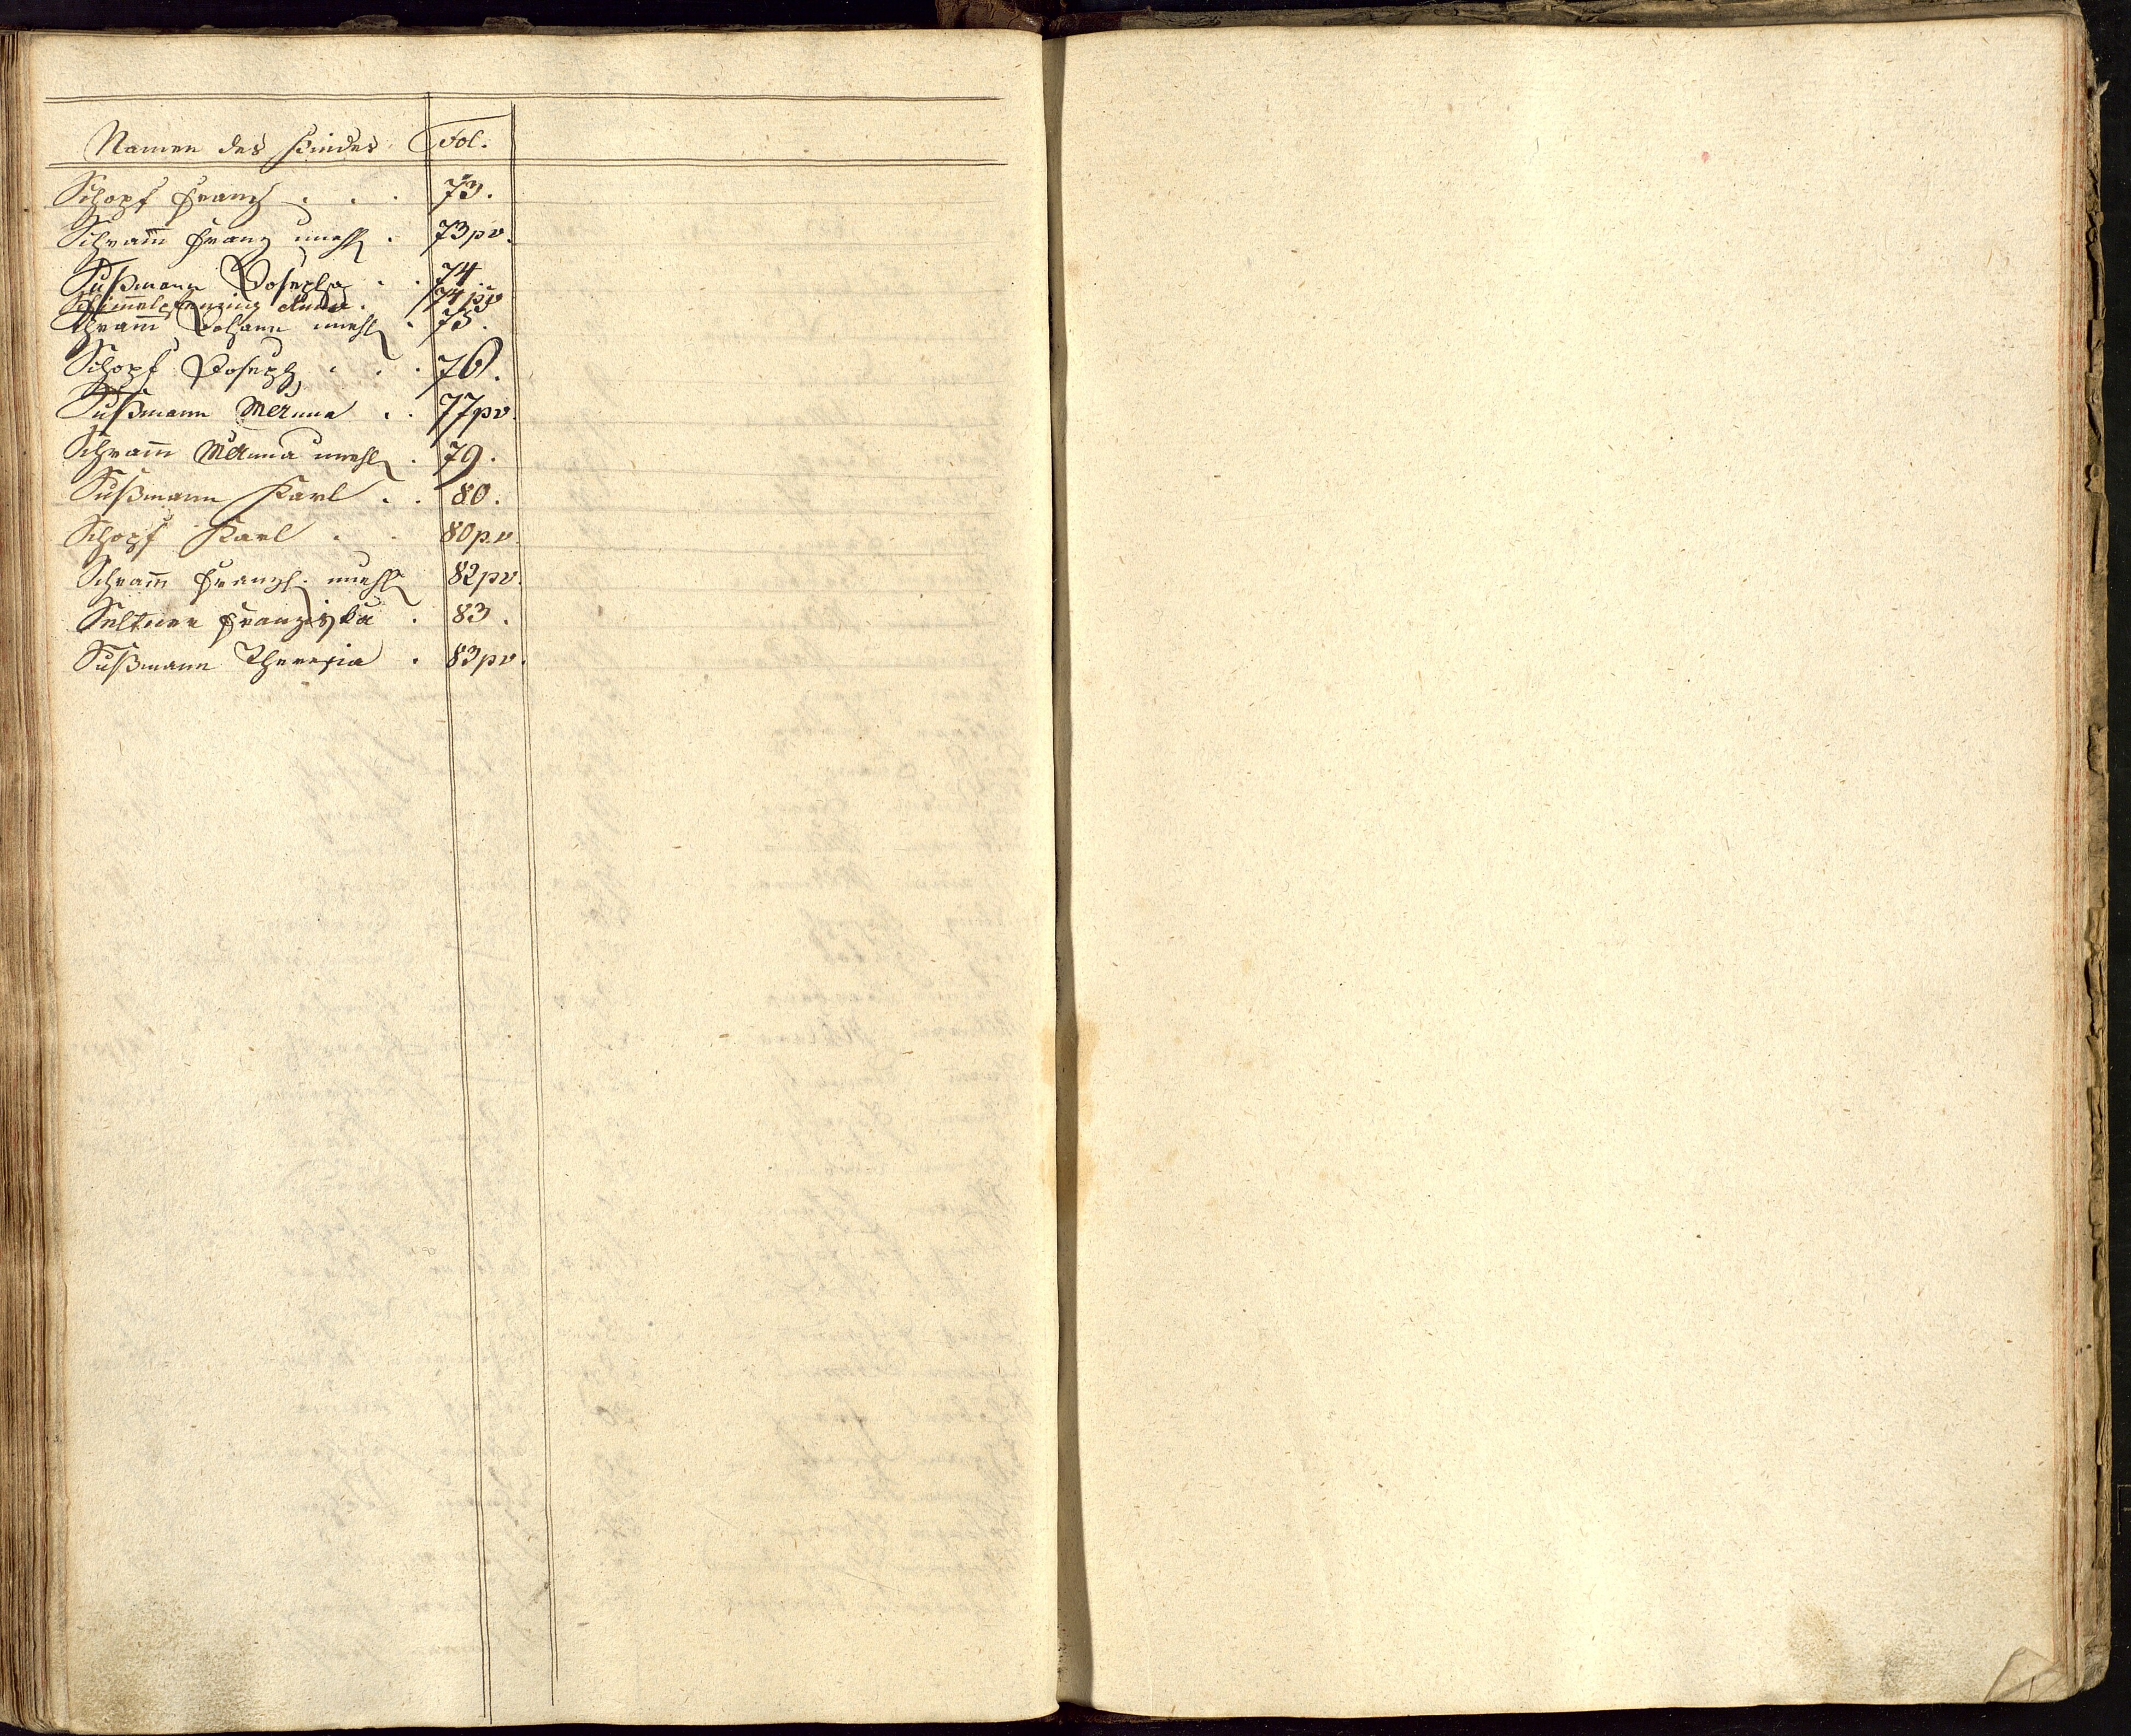 Namen des Kindes Fol.
Schopf Franz . . . 73.
Schram̄ Franz unehl . 73pv.
Sußmann Josepha . . 74.
Schim̄elpfenzing Anna . 74pv
Schram̄ Johann unehl . 75.
Schopf Joseph . . . 76.
Sußmann MAnna . . 77pv.
Schram̄ MAnna unehl . 79.
Sußmann Karl . . 80.
Schopf Karl . . 80pv.
Schram̄ Franz unehl 82pv.
Seltner Franziska . 83.
Sußmann Theresia . 83pv.